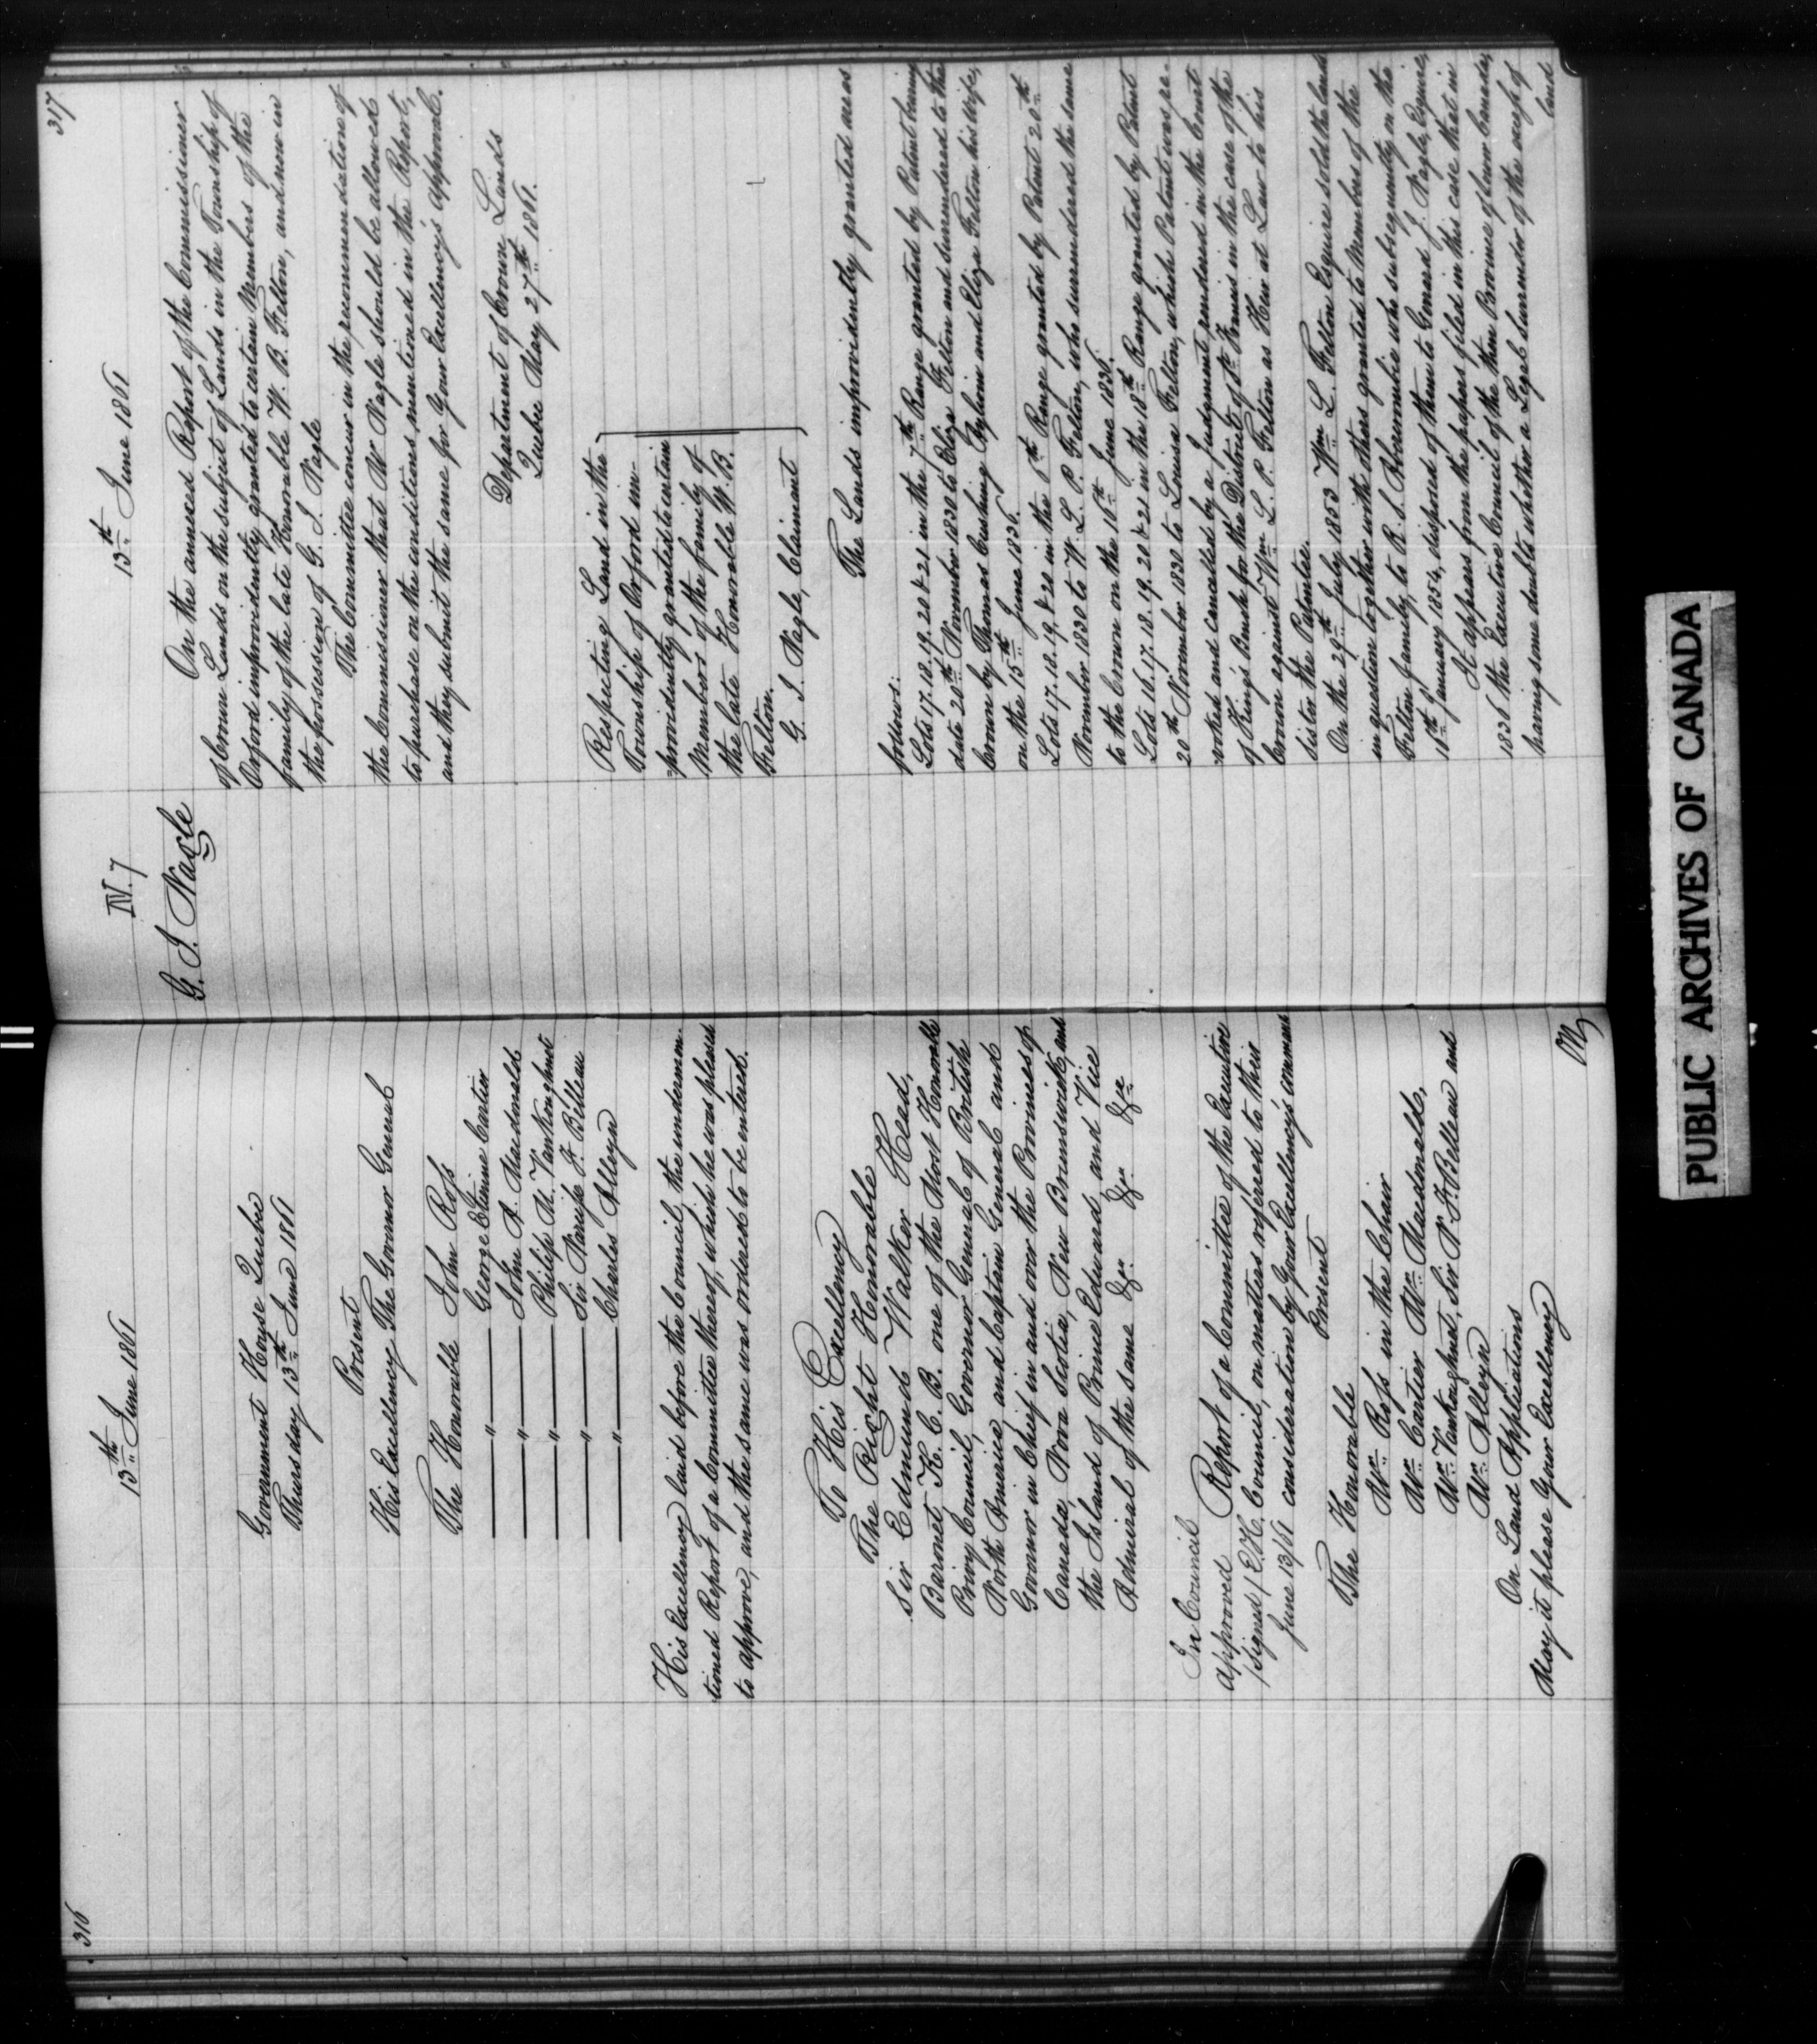 316
13th June 1861
Government House Quebec
Thursday 13th June 1861
Present
His Excellency The Governor General
The Honorable John Ross
" George Etienne Cartier
" John A. Macdonald
" Philip M. Vankoughnet
" Sir Narcisse F. Belleau
" Charles Alleyn
His Excellency laid before the Council, the undermen-
tioned Report of a Committee thereof, which he was pleased
to approve, and the same was ordered to be entered.
To His Excellency
The Right Honorable
Sir Edmund Walker Head,
Baronet, K. C. B. one of the Most Honorable
Privy Council, Governor General of British
North America, and Captain General and
Governor in Chief in and over the Provinces of
Canada, Nova Scotia, New Brunswick, and
the Island of Prince Edward, and Vice
Admiral of the same &c. &c. &c.
In Council
Approved
/Signed/ E. H.
June 13/61
Report of a Committee of the Executive
Council, on matters referred to their
consideration by Your Excellency's command
Present
The Honorable
Mr. Ross in the Chair
Mr. Cartier Mr. Macdonald,
Mr. Vankoughnet, Sir N. F. Belleau and
Mr. Alleyn
On Land Applications
May it please Your Excellency
On
317
13th June 1861
IV. 7
G. I. Nagle
On the annexed Report of the Commissioner
of Crown Lands on the subject of Lands in the Township of
Orford improvidently granted to certain Members of the
family of the late Honorable W. B. Felton, and now in
the possession of G. I. Nagle
The Committee concur in the recommendation of
the Commissioner that Mr Nagle should be allowed
to purchase on the conditions mentioned in the Report,
and they submit the same for Your Excellency's approval.
Department of Crown Lands
Quebec May 27th 1861.
Respecting Land in the
Township of Orford im-
providently granted to certain
Members of the family of
the late Honorable W. B.
Felton.
G. I. Nagle, Claimant
The Lands improvidently granted are as
follows:
Lots 17. 18. 19. 20 & 21 in the 7th Range granted by Patent bearing
date 20th November 1830 to Eliza Felton and surrendered to the
Crown by Thomas Cushing Aylwin and Eliza Felton his Wife,
on the 15th June 1836.
Lots 17. 18. 19. & 20 in the 6th Range granted by Patent 20th
November 1830 to W. L. P. Felton, who surrendered the same
to the Crown on the 16th June 1836.
Lots 16. 17. 18. 19. 20 & 21 in the 18th Range granted by Patent
20th November 1830 to Louisa Felton, which Patent was re-
voked and cancelled by a Judgment rendered in the Court
of King's Bench for the District of St. Francis in the case of the
Crown against Wm. L. P. Felton as Heir at Law to his
sister the Patentee.
On the 29th July 1853 Wm. L. Felton Esquire sold the lands
in question together with others granted to Members of the
Felton family, to R. S. Abercrombie who subsequently on the
18th January 1854, disposed of them to Gerrard J. Nagle, Esquire,
It appears from the papers filed in this case that in
1836 the Executive Council of the then Province of Lower Canada,
having some doubts whether a Legal surrender of the
land